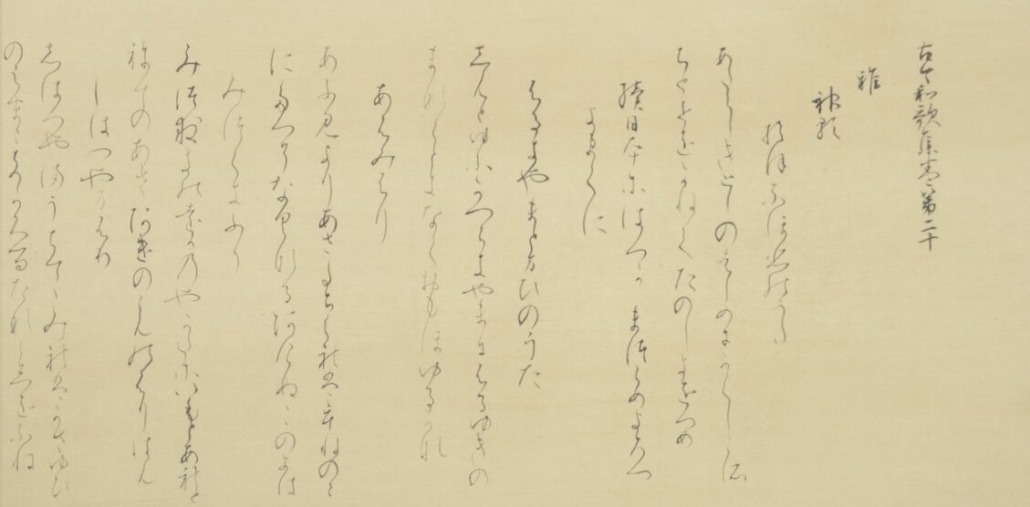 古今和歌集巻第二十
雅
神歌
おほなほひのうた
あたらしきとしのはしめにかくしこそ
ちとせをかねてたのしきをつめ
続日本にはつかまつらめよろつ
よまてに
ふるきやまとまひのうた
しもとゆふかつらきやまにふるゆきの
まなくときなくおもほゆるかな
あふみふり
あふみよりあさたちくれはうねのの
にたつそなくなるあけぬこのよは
みつくきふり
みつくきのをかのやかたにいもとあれと
ねてのあさけのしものふりはも
しはつやまふり
しはつやまうちいててみれはかさゆひ
のしまこきかくるたななしをふね